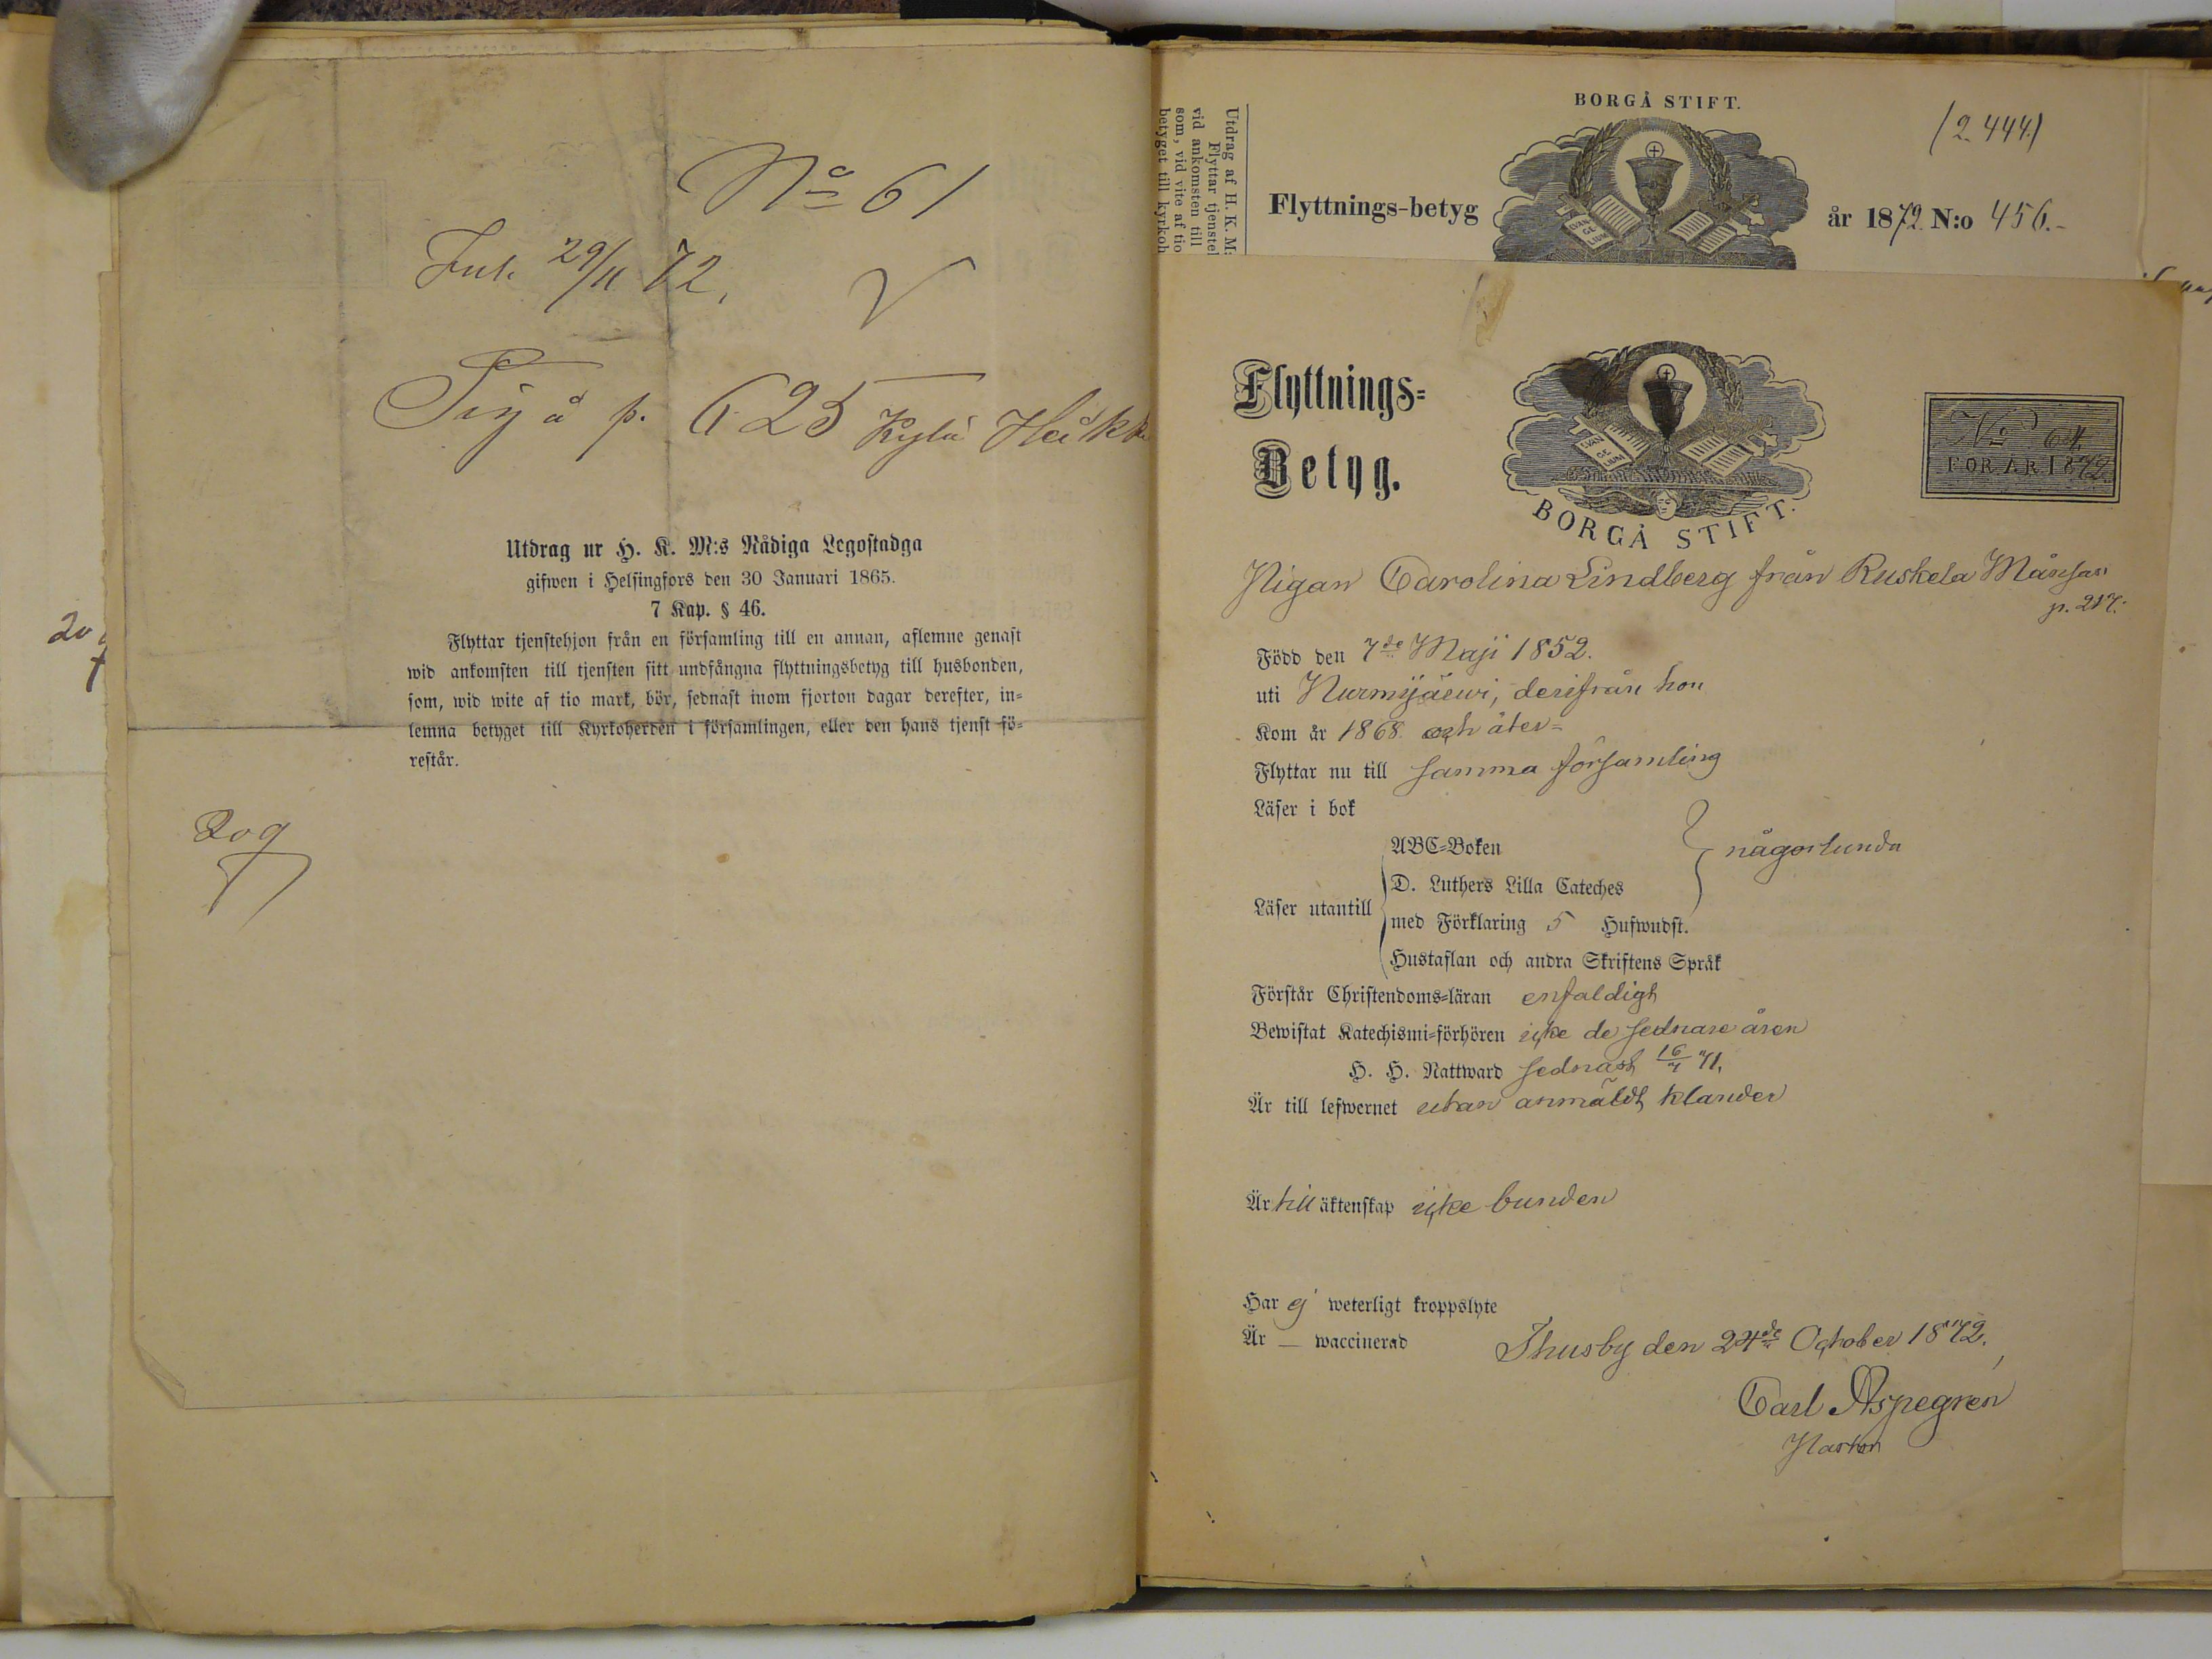 No 61
Ink. 29/11 72.
Pig å p. 625 Kylä Heikk
Utdrag ur H. K. M:s Nådiga Legostadga
gifwen i Helsingfors den 30 Januari 1865.
7 Kap. § 46.
Flyttar tjenstehjon från en församling till en annan, aflemne genast
wid ankomsten till tjensten sitt undfångna flyttningsbetyg till husbonden,
som, wid wite af tio mark, bör, sednast inom fjorton dagar derefter, in-
lemna betyget till Kyrkoherden i församlingen, eller den hans tjenst fö-
restår.
209
20
Utdrag af H. K. M:
Flyttar tjenstel
vid ankomsten till
som, vid vite af tio
betyget till kyrkoh
BORGÅ STIFT.
(2.444)
Flyttnings-betyg
EVAN
GE
LIUM
år 1872. N:o 456.-
Flyttnings-
Betyg.
EVAN
GE
LIUM
BORGÅ STIFT.
No 64.
FÖR ÅR 1872.
Pigan Carolina Lindberg från Ruskela Månsas
p. 217.
Född den 7de Maji 1852.
uti Nurmijärwi, derifrån hon
Kom år 1868. och åter-
Flyttar nu till samma församling
Läser i bok
ABC-Boken
någorlunda
D. Luthers Lilla Cateches
Läser utantill
med Förklaring 5 Hufwudst.
Hustaflan och andra Skriftens Språk
Förstår Christendoms-läran enfaldigt
Bewistat Katechismi-förhören icke de sednare åren
H. H. Nattward sednast 16/4 71.
Är till lefwernet utan anmäldt klander
Är till äktenskap icke bunden
Har ej weterligt kroppslyte
Är — waccinerad
Thusby den 24de October 1872.
Carl Aspegren
Pastor